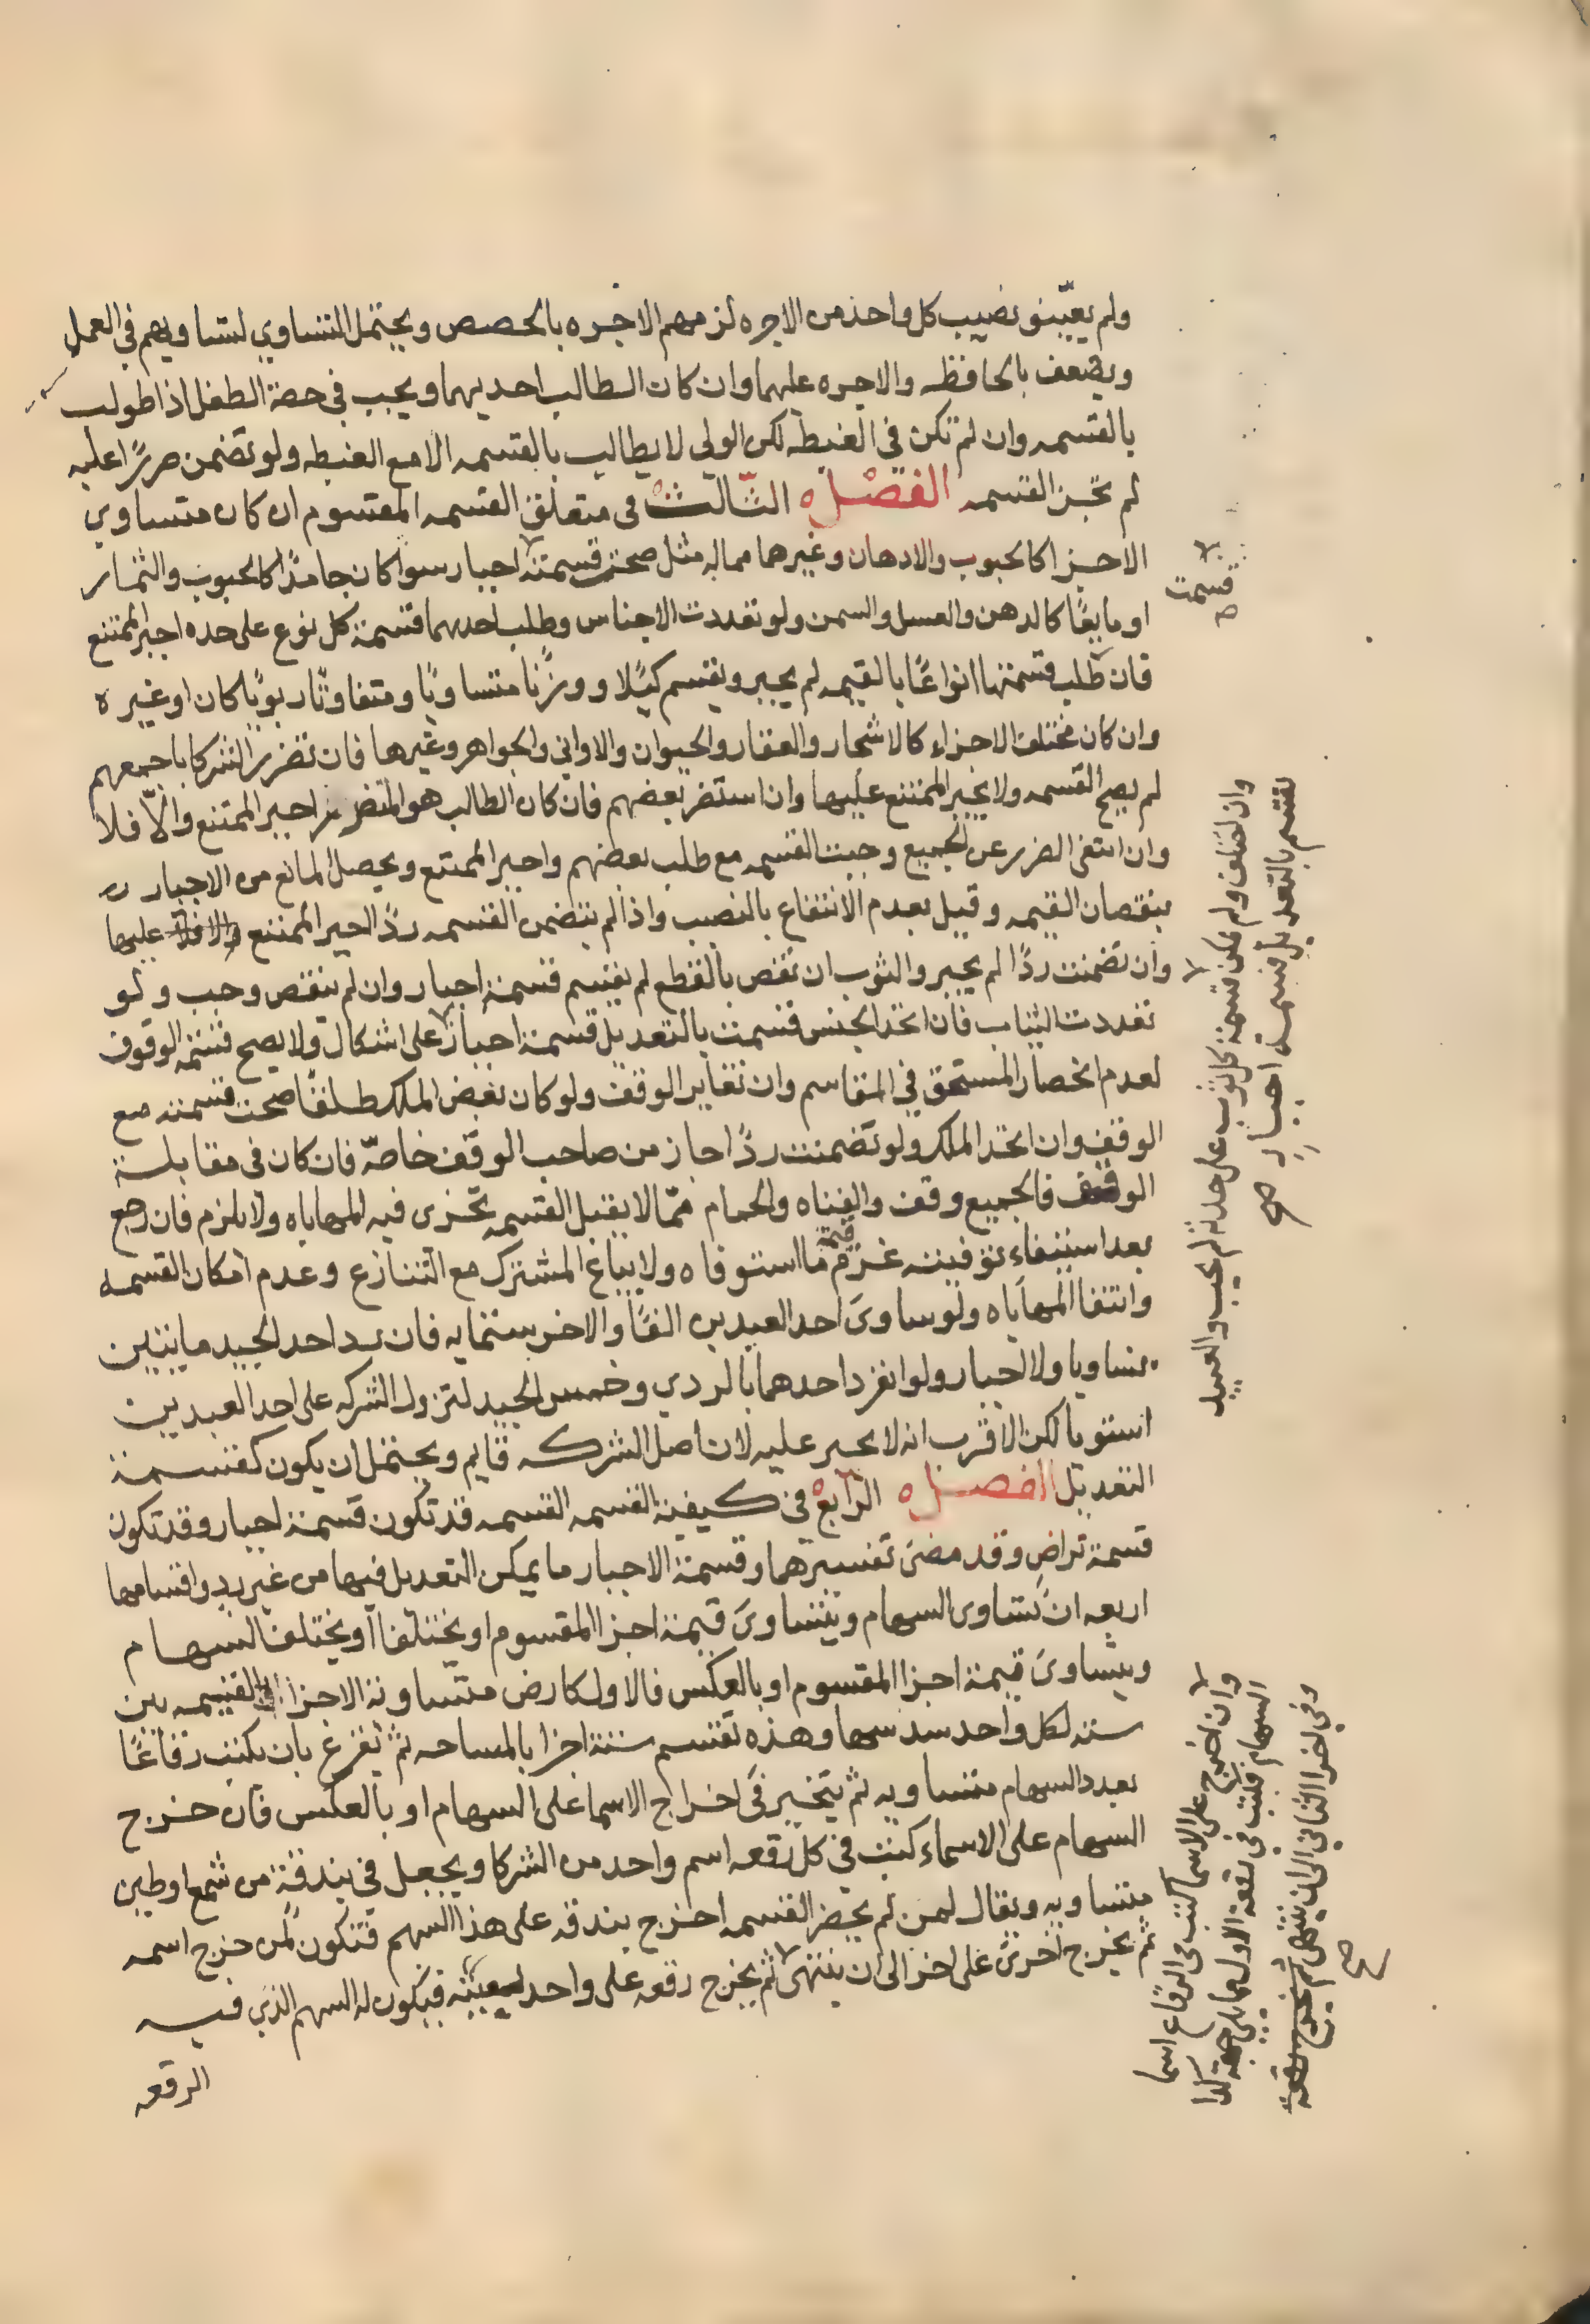 ولم يعينو نصيب كل واحد من الاجره لزمهم الاجره بالحصص ويحتمل التساوي لتساويهم في العمل
ويضعف بالحافظه والاجره عليهما وان كان الطالب احديهما ويجب في حصة الطفل اذا طولب
بالقسمه وان لم تكن في الغبطه لكن الولي لا يطالب بالقسمه الا مع الغبطه ولو تضمن ضررًا عليه
لم تجز القسمه الفصل الثالث في متعلق القسمه المقسوم ان كان متساوي
الاجزا كالحبوب والادهان وغيرها مماله مثل صحت قسمته اجبار سوا كان جامدًا كالحبوب والثمار
او مايعًا كالدهن والعسل والسمن ولو تعددت الاجناس وطلب احدهما قسمة كل نوع على حده اجبر الممتنع
فان طلب قسمتها انواعًا بالقيمه لم يجبر ويقسم كيلًا ووزنًا متساويًا ومتفاوتًا ربويًا كان او غيره
وان كان مختلف الاجزاء كالاشجار والعقار والحيوان والاواني والجواهر وغيرها فان تضرر الشركا باجمعهم
لم يصح القسمه ولا يجبر الممتنع عليها وان استضر بعضهم فان كان الطالب هو المتضرر اجبر الممتنع والّا فلا
وان انتفى الضرر عن الجميع وجبت القسمه مع طلب بعضهم واجبر الممتنع ويحصل المانع من الاجبار
بنقصان القيمه وقيل بعدم الانتفاع بالنصيب واذا لم يتضمن القسمه ردًا اجبر الممتنع والا فلا عليها
وان تضمنت ردًا لم يجبر والثوب ان نقص بالقطع لم يقسم قسمة اجبار وان لم ينقص وجب ولو
تعددت الثياب فان اتحد الجنس قسمت بالتعديل قسمة اجبار على اشكال ولا يصح قسمة الوقوف
لعدم انحصار المستحق في المقاسم وان تغاير الوقف ولو كان بعض الملك طلقًا صحت قسمته مع
الوقف وان اتحد الملك ولو تضمنت ردًا جاز من صاحب الوقف خاصّة فان كان في مقابلة
الوقف فالجميع وقف والقناه والحمام ممّا لا يقبل القسمه تجزى فيه المهاياه ولا يلزم فان رجع
بعد استيفاء نوفيته غرم قيمة ما استوفاه ولا يباع المشترك مع التنازع وعدم امكان القسمه
وانتفا المهاياه ولو ساوى احد العبدين الفًا والاخر ستمايه فان رد احد الجيد مايتين
تساويا ولا اجبار ولو انفرد احدهما بالردي وخمس الجيد لتزول الشركه على احد العبدين
استويا لكن الاقرب انه لا يجبر عليه لان اصل الشركه قايم ويحتمل ان يكون كقسمة
التعديل الفصل الرابع في كيفية القسمه القسمه قد تكون قسمة اجبار وقد تكون
قسمة تراضٍ وقد مضى تفسيرهما وقسمة الاجبار ما يمكن التعديل فيها من غير رد واقسامها
اربعه ان تساوى السهام ويتساوى قيمة اجزا المقسوم او يختلفا او يختلف السهام
ويتساوى قيمة اجزا المقسوم او بالعكس فالاول كارض متساوية الاجزا القيمه بين
سته لكل واحد سدسها وهذه تقسم ستة اجزا بالمساحه ثم يقرع بان يكتب رقاعًا
بعدد السهام متساويه ثم يتخير في اخراج الاسما على السهام او بالعكس فان خرج
السهام على الاسماء كتب في كل رقعه اسم واحد من الشركا ويجعل في بندقة من شمع او طين
متساويه ويقال لمن لم يحضر القسمه اخرج بندقه على هذا السهم فتكون لمن خرج اسمه
ثم يخرج اخرى على اخر الى ان ينتهي ثم يخرج رقعه على واحد لعينه فيكون له السهم الذي فيه
الرقعه
قسمت
وان اختلف ولم يمكن قسمة كل ثوب على حدته لم يجب والعبيد
تقسم بالتعديل قسمة اجبارٍ صح
وان اخرج على الاسما كتب في الرقاع اسما
السهام فكتب في رقعة الاول مما يلي جهة كذا
وفي اخرا الثاني الى ان ينتهي ثم يخرج رقعة
صح